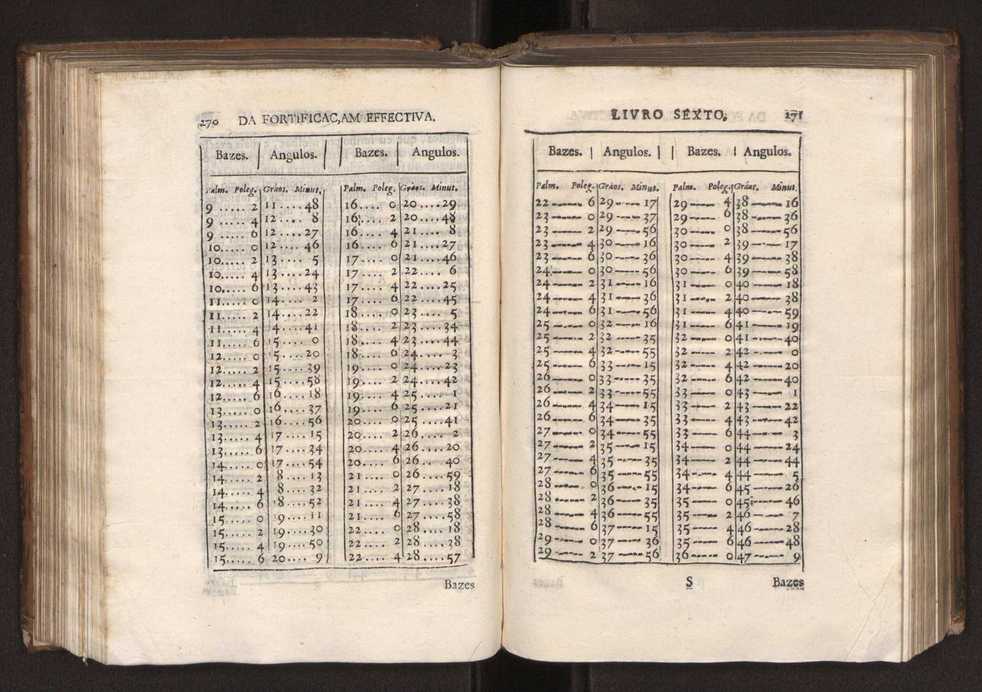 270 DA FORTIFICAC,AM EFFECTIVA.
Bazes. | Angulos. | | Bazes. | Angulos.
Palm. Poleg. Gráos. Minut. Palm. Poleg. Gráos. Minut.
9 ..... 2 11 .... 48 16 .... 0 20 .... 29
9 ..... 4 12 .... 8 16 .... 2 20 .... 48
9 ..... 6 12 .... 27 16 .... 4 21 .... 8
10..... 0 12 .... 46 16 .... 6 21 .... 27
10..... 2 13 .... 5 17 .... 0 21 .... 46
10..... 4 13 .... 24 17 .... 2 22 .... 6
10..... 6 13 .... 43 17 .... 4 22 .... 25
11..... 0 14 .... 2 17 .... 6 22 .... 45
11..... 2 14 .... 22 18 .... 0 23 .... 5
11..... 4 14 .... 41 18 .... 2 23 .... 34
11..... 6 15 .... 0 18 .... 4 23 .... 44
12..... 0 15 .... 20 18 .... 6 24 .... 3
12..... 2 15 .... 39 19 .... 0 24 .... 23
12..... 4 15 .... 58 19 .... 2 24 .... 42
12..... 6 16 .... 18 19 .... 4 25 .... 1
13..... 0 16 .... 37 19 .... 6 25 .... 21
13..... 2 16 .... 56 20 .... 0 25 .... 41
13..... 4 17 .... 15 20 .... 2 26 .... 2
13..... 6 17 .... 34 20 .... 4 26 .... 20
14..... 0 17 .... 54 20 .... 6 26 .... 40
14..... 2 8 .... 13 21 .... 0 26 .... 59
14..... 4 8 .... 32 21 .... 2 27 .... 18
14..... 6 8 .... 52 21 .... 4 27 .... 38
15..... 0 9 .... 11 21 .... 6 27 .... 58
15..... 2 19 .... 30 22 .... 0 28 .... 18
15..... 4 19 .... 50 22 .... 2 28 .... 38
15..... 6 20 .... 9 22 .... 4 28 .... 57
Bazes
LIVRO SEXTO. 271
Bazes. | Angulos. | | Bazes. | Angulos.
Palm. Poleg. Gráos. Minut. Palm. Poleg. Gráos. Minut.
22 — 6 29 — 17 29 — 4 38 — 16
23 — 0 29 — 37 29 — 6 38 — 36
23 — 2 29 — 56 30 — 0 38 — 56
23 — 4 30 — 16 30 — 2 39 — 17
23 — 6 30 — 36 30 — 4 39 — 38
24 — 0 30 — 56 30 — 6 39 — 58
24 — 2 31 — 16 31 — 0 40 — 18
24 — 4 31 — 36 31 — 2 40 — 38
24 — 6 31 — 56 31 — 4 40 — 59
25 — 0 32 — 16 31 — 6 41 — 19
25 — 2 32 — 35 32 — 0 41 — 40
25 — 4 32 — 55 32 — 2 42 — 0
25 — 6 33 — 15 32 — 4 42 — 20
26 — 0 33 — 35 32 — 6 42 — 40
26 — 2 33 — 55 33 — 0 43 — 1
26 — 4 34 — 15 33 — 2 43 — 22
26 — 6 34 — 35 33 — 4 43 — 42
27 — 0 34 — 55 33 — 6 44 — 3
27 — 2 35 — 15 34 — 0 44 — 24
27 — 4 35 — 35 34 — 2 44 — 44
27 — 6 35 — 55 34 — 4 44 — 5
28 — 0 36 — 15 34 — 6 45 — 26
28 — 2 36 — 35 35 — 0 45 — 46
28 — 4 36 — 55 35 — 2 46 — 7
28 — 6 37 — 15 35 — 4 46 — 28
29 — 0 37 — 36 35 — 6 46 — 48
29 — 2 37 — 56 36 — 0 47 — 9
S Bazes